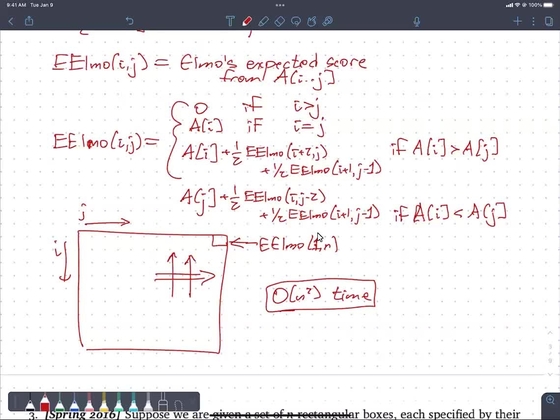 9:41 AM Tue Jan 9
100%
EElmo(i,j) = Elmo's expected score
from A[i..j]
EElmo(i,j) =
0 if i>j
A[i] if i=j
A[i] + 1/2 EElmo(i+2,j)
+ 1/2 EElmo(i+1,j-1) if A[i] > A[j]
A[j] + 1/2 EElmo(i,j-2)
+ 1/2 EElmo(i+1,j-1) if A[i] < A[j]
j
i
EElmo(1,n)
O(n²) time
3. [Spring 2016] Suppose we are given a set of n rectangular boxes, each specified by their